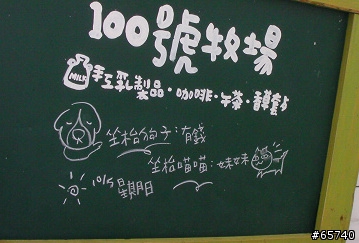 100號牧場
MILK 手工乳製品·咖啡·午茶·香草套房
坐枱狗子:有錢
坐枱喵喵:妹妹
10/5 星期日
#65740